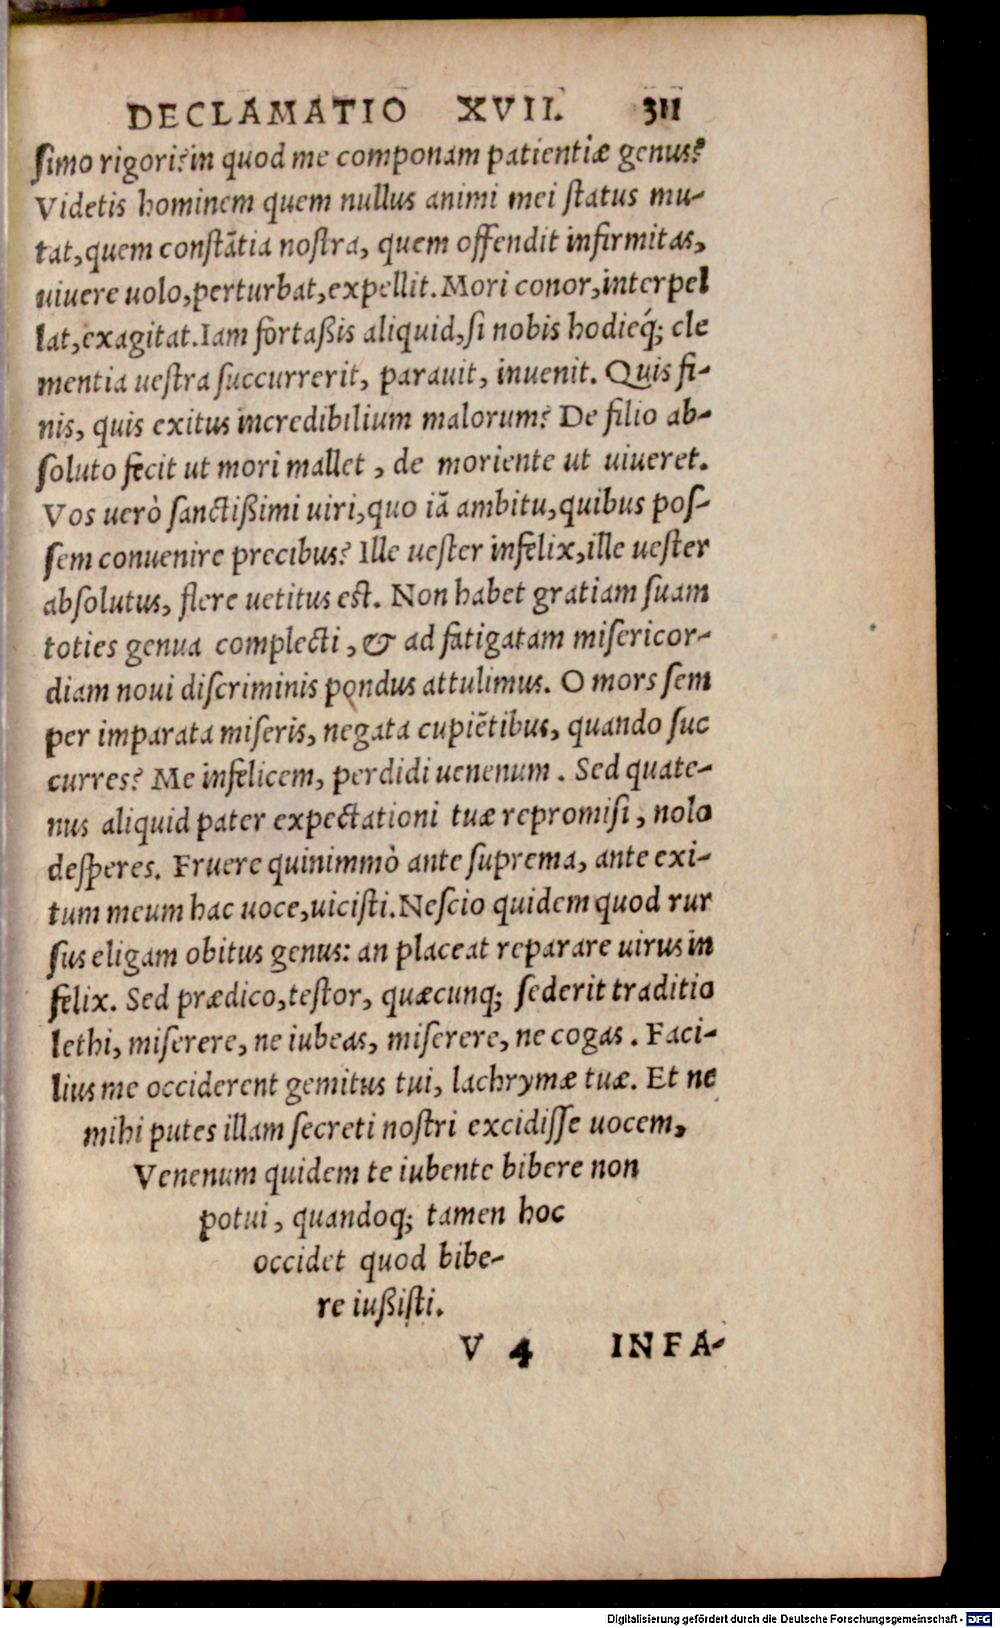 DECLAMATIO XVII. 311
ſimo rigori? in quod me componam patientiæ genus?
Videtis hominem quem nullus animi mei ſtatus mu-
tat, quem conſtãtia noſtra, quem offendit infirmitas,
uiuere uolo, perturbat, expellit. Mori conor, interpel
lat, exagitat. Iam fortaßis aliquid, ſi nobis hodieq́; cle
mentia ueſtra ſuccurrerit, parauit, inuenit. Quis fi-
nis, quis exitus incredibilium malorum? De filio ab-
ſoluto fecit ut mori mallet, de moriente ut uiueret.
Vos uerò ſanctißimi uiri, quo iã ambitu, quibus poſ-
ſem conuenire precibus? Ille ueſter infelix, ille ueſter
abſolutus, flere uetitus eſt. Non habet gratiam ſuam
toties genua complecti, & ad fatigatam miſericor-
diam noui diſcriminis pondus attulimus. O mors ſem
per imparata miſeris, negata cupiẽtibus, quando ſuc
curres? Me infelicem, perdidi uenenum. Sed quate-
nus aliquid pater expectationi tuæ repromiſi, nolo
deſperes. Fruere quinimmò ante ſuprema, ante exi-
tum meum hac uoce, uiciſti. Neſcio quidem quod rur
ſus eligam obitus genus: an placeat reparare uirus in
felix. Sed prædico, teſtor, quæcunq; ſederit traditio
lethi, miſerere, ne iubeas, miſerere, ne cogas. Faci-
lius me occiderent gemitus tui, lachrymæ tuæ. Et ne
mihi putes illam ſecreti noſtri excidiſſe uocem,
Venenum quidem te iubente bibere non
potui, quandoq; tamen hoc
occidet quod bibe-
re iußiſti.
V 4 INFA-
Digitalisierung gefördert durch die Deutsche Forschungsgemeinschaft - DFG